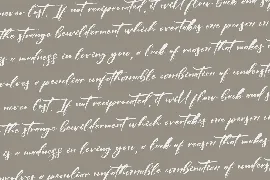 never lost. If not reciprocated, it will flow back and s
the strange bewilderment which overtakes one person on
is a madness in loving you, a lack of reason that makes
volves a peculiar unfathomable combination of underst
never lost. If not reciprocated, it will flow back and s
the strange bewilderment which overtakes one person on
is a madness in loving you, a lack of reason that makes
volves a peculiar unfathomable combination of underst